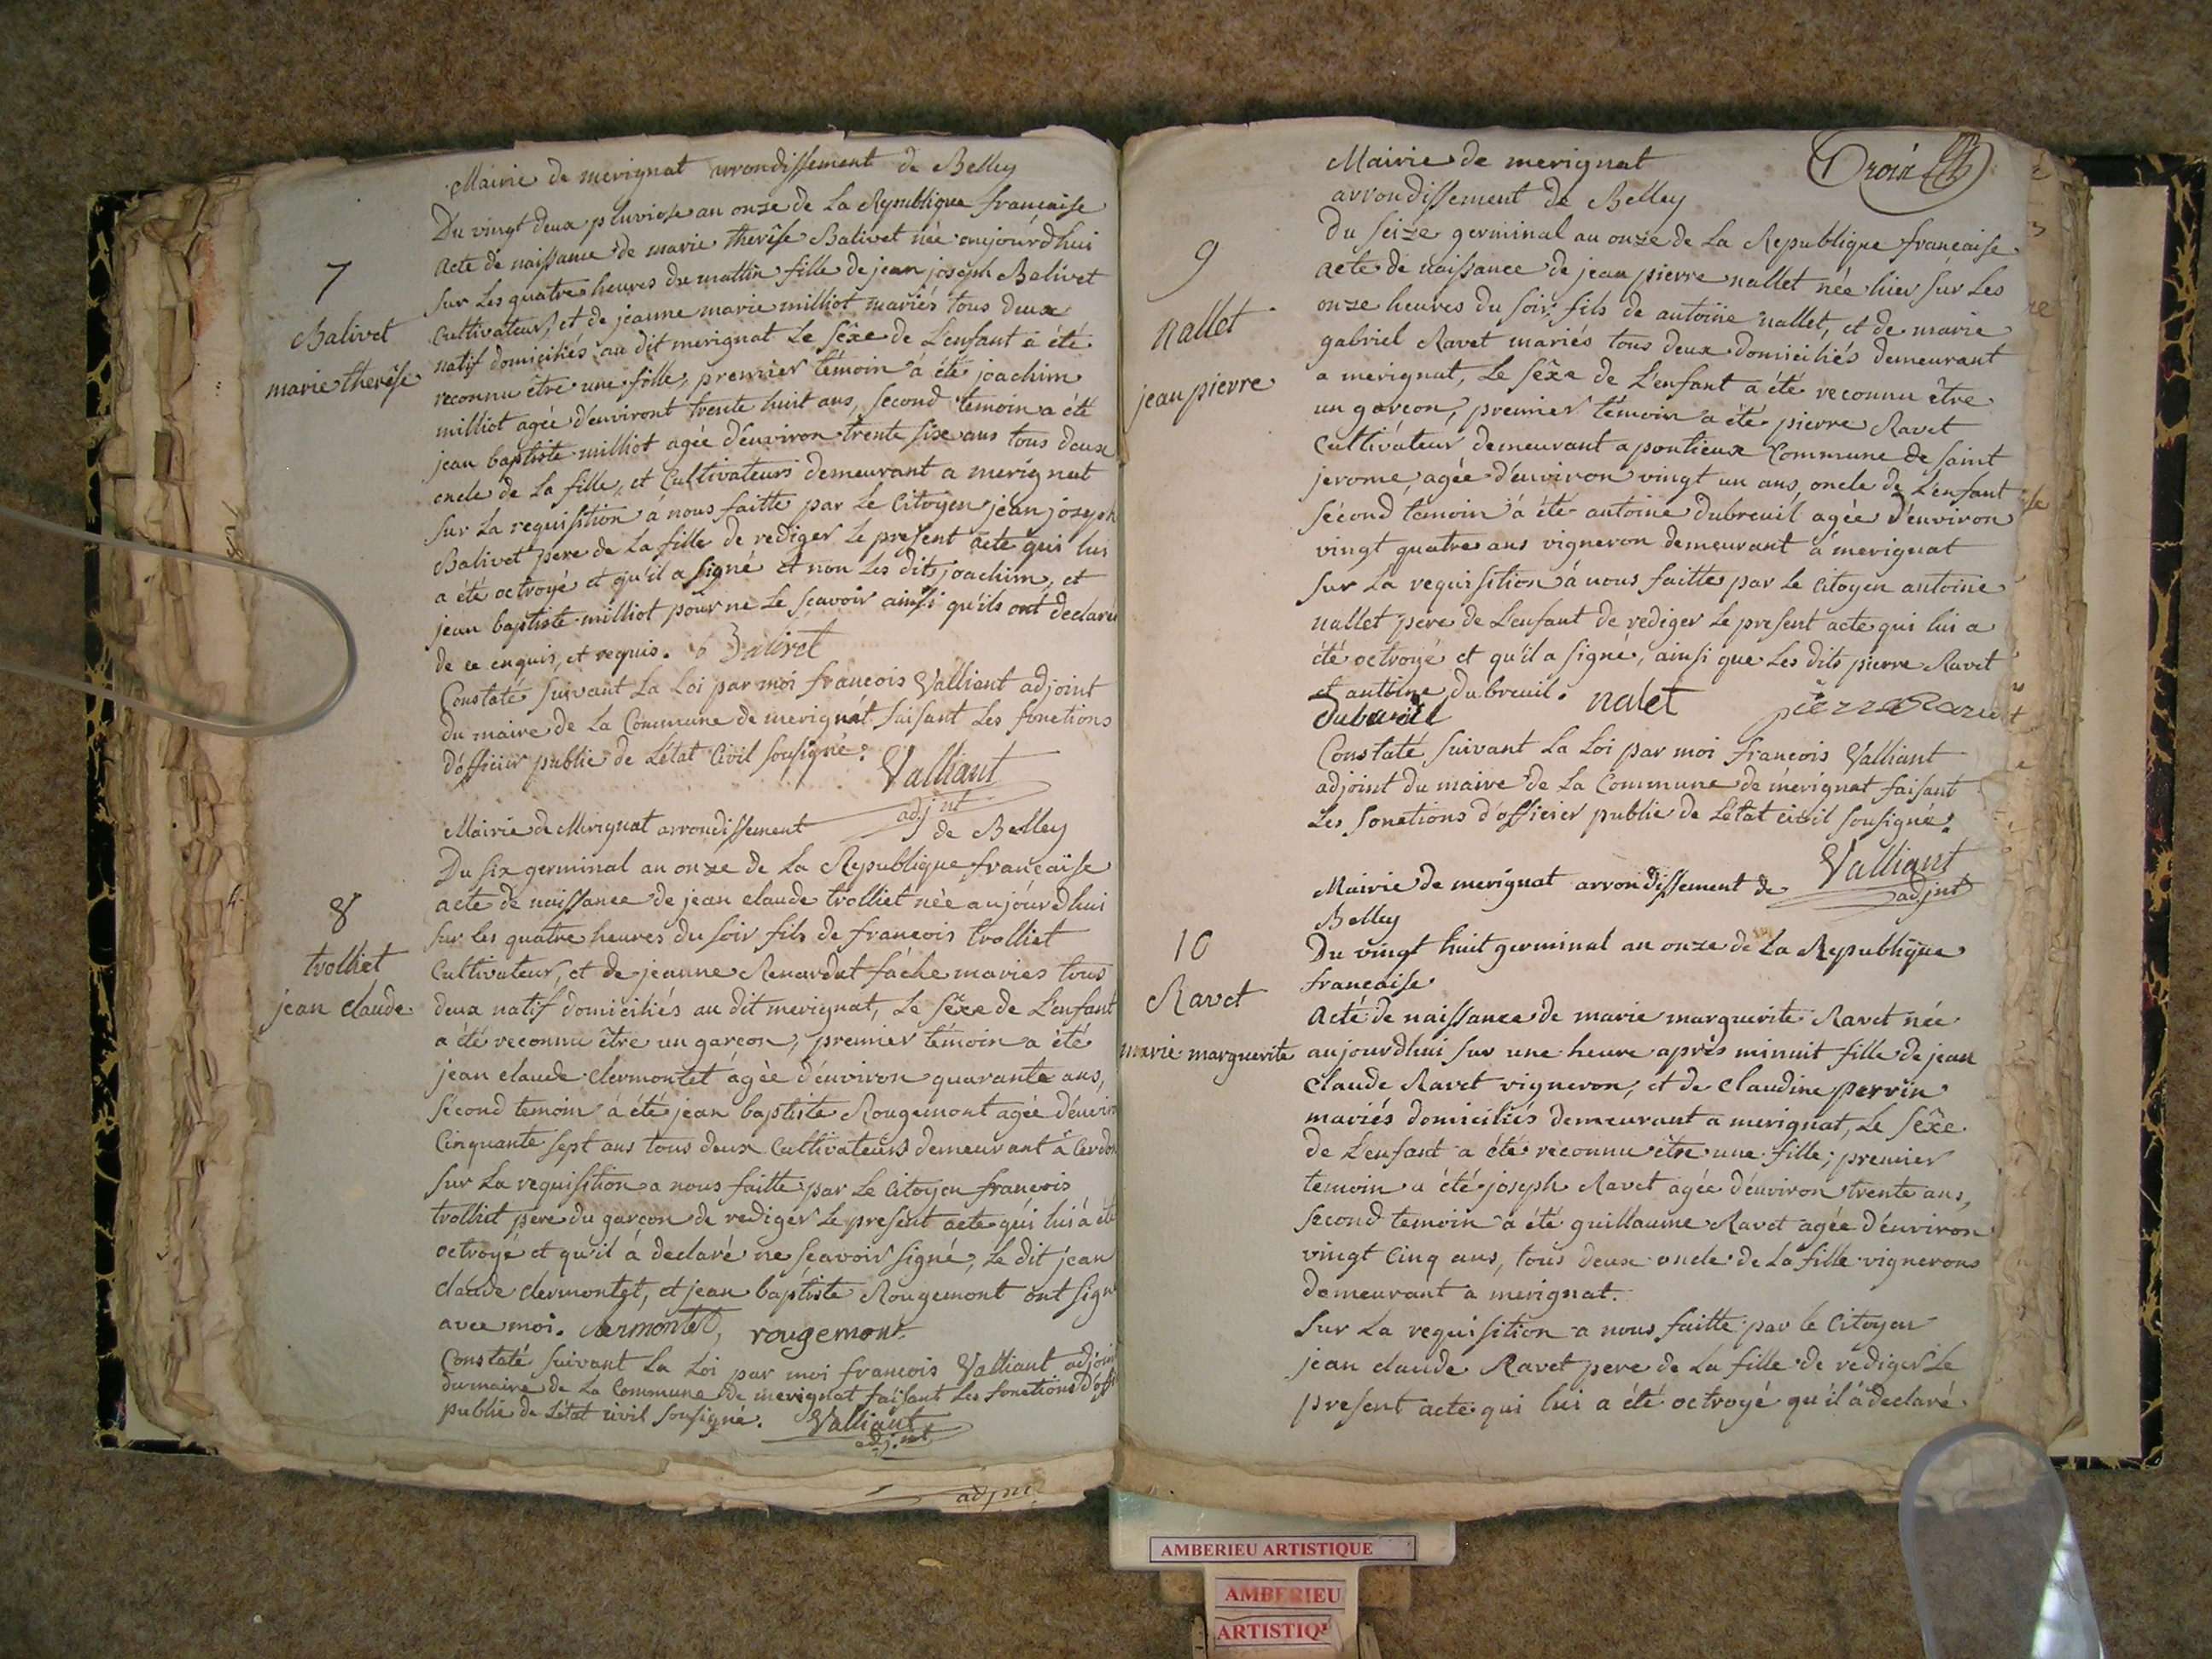 Mairie de merignat arrondissement de Belley
Du vingt deux pluviose an onze de La Republique francaise
acte de naissance de marie therèse Balivet née aujourdhui
7
sur Les quatre heures du mattin fille de jean joseph Balivet
Balivet
Cultivateur, et de jeanne marie milliot mariés tous deux
marie therèse
natif domiciliés au dit merignat Le sêxe de L'enfant a été
reconnu être une fille, premier témoin a été joachim
milliot agée d'environt trente huit ans, second temoin a été
jean baptiste milliot agée d'environ trente six ans tous deux
oncle de La fille, et Cultivateurs demeurant a merignat
Sur La requisition à nous faitte par Le Citoyen jean joseph
Balivet pere de La fille de rediger Le present acte qui lui
a été octroyé et qu'il a signé et non Les dits joachim, et
jean baptiste milliot pour ne Le scavoir ainsi qu'ils ont declaré
de ce enquis, et requis. Balivet
Constaté suivant La Loi par moi francois Valliant adjoint
du maire de La Commune de merignat faisant Les fonctions
d'officier public de L'état Civil sousigné.
Valliant
adjnt
Mairie de Merignat arrondissement de Belley
Du six germinal an onze de La Republique francaise
8
acte de naissance de jean claude trolliet née aujourdhui
sur les quatre heures du soir fils de francois trolliet
trolliet
Cultivateur, et de jeanne Renardat fâche mariés tous
jean claude
deux natif domiciliés au dit merignat, Le sêxe de L'enfant
a été reconnu être un garcon, premier témoin a été
jean claude clermontet agée d'environ quarante ans,
sécond temoin a été jean baptiste Rougemont agée d'envir
Cinquante sept ans tous deux Cultivateurs demeurant a Cerdon
Sur La requisition a nous faitte par Le Citoyen francois
trolliet pere du garcon de rediger Le present acte qui lui a été
octroyé et qu'il à declaré ne scavoir signé, Le dit jean
claude clermontet, et jean baptiste Rougemont ont sign
avec moi. clermontet, rougemont
Constaté suivant La Loi par moi francois Valliant adjoin
du maire de La Commune de merignat faisant Les fonctions d'off
public de L'état civil sousigné. Valliant
adjnt
Mairie de merignat
arrondissement de Belley
Du seize germinal an onze de La Republique francaise
9
acte de naissance de jean pierre nallet née hier sur Les
onze heures du soir, fils de antoine nallet, et de marie
nallet
gabriel Ravet mariés tous deux domiciliés demeurant
jean pierre
a merignat, Le sêxe de L'enfant a été reconnu être
un garcon, premier témoin a été pierre Ravet
Cultivateur demeurant a pontieux Commune de saint
jerome, agée d'environ vingt un ans, oncle de L'enfant
sécond temoin a été antoine dubreuil agée d'environ
vingt quatre ans vigneron demeurant a merignat
Sur La requisition à nous faitte par Le Citoyen antoine
nallet pere de L'enfant de rediger Le present acte qui lui a
été octroyé et qu'il a signé, ainsi que Les dits pierre Ravet
et antoine dubreuil. nalet
Dubreuil
pierre Ravet
Constaté suivant La Loi par moi francois Valliant
adjoint du maire de La Commune de merignat faisant
Les fonctions d'officier public de L'état civil sousigné.
Valliant
adjnt
Mairie de merignat arrondissement de
Belley
10
Du vingt huit germinal an onze de La Republique
francaise
Ravet
acte de naissance de marie marguerite Ravet née
marie marguerite
aujourdhui sur une heure aprés minuit fille de jean
claude Ravet vigneron, et de claudine perrin
mariés domiciliés demeurant a merignat, Le sêxe
de L'enfant a été reconnu être une fille, premier
temoin a été joseph Ravet agée d'environ trente ans,
second temoin a été guillaume Ravet agée d'environ
vingt Cinq ans, tous deux oncle de La fille vignerons
demeurant a merignat.
Sur La requisition a nous faitte par le Citoyen
jean claude Ravet pere de La fille de rediger Le
present acte qui lui a été octroyé qu'il à declaré
AMBERIEU ARTISTIQUE
AMBERIEU
ARTISTIQ